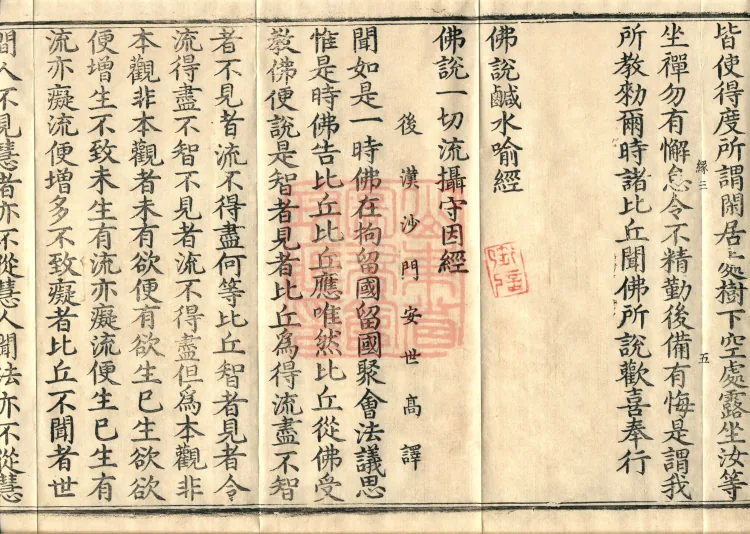 皆使得度所謂閑居上処樹下空處露坐汝等
三 五
坐禪勿有懈怠令不精勤後備有悔是謂我
所教勑爾時諸比丘聞佛所說歡喜奉行
佛說鹹水喻經
佛說一切流攝守因經
後漢沙門安世高譯
聞如是一時佛在拘留國留國聚會法議思
惟是時佛告比丘比丘應唯然比丘從佛受
教佛便說是智者見者比丘為得流盡不智
者不見者流不得盡何等比丘智者見者令
流得盡不智不見者流不得盡但為本觀非
本觀非本觀者未有欲便有欲生已生欲欲
便增生不致未生有流亦癡流便生已生有
流亦癡流便增多不致癡者比丘不聞者世
間人不見慧者亦不從慧人聞法亦不從慧